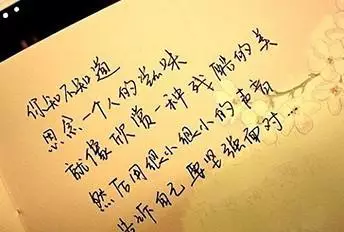 你知不知道
思念一个人的滋味
就像欣赏一种残酷的美
然后用很小很小的声音
告诉自己要坚强面对...